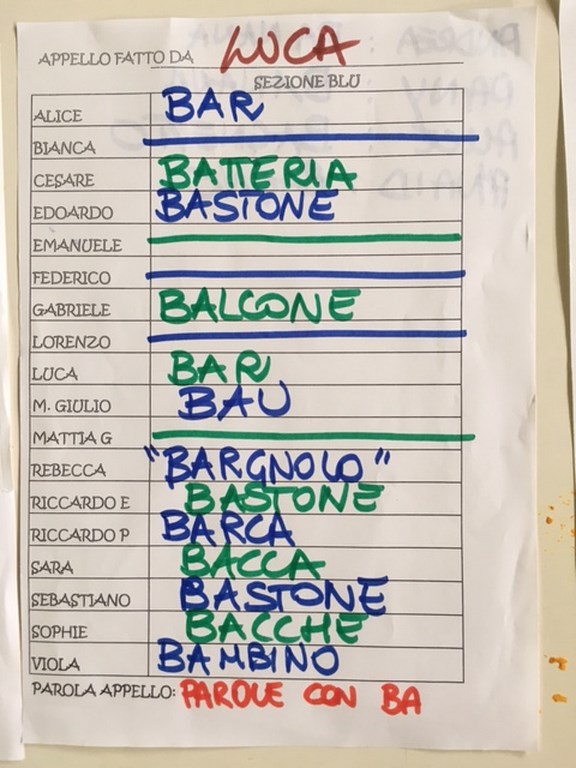 APPELLO FATTO DA LUCA
SEZIONE BLU
ALICE BAR
BIANCA
CESARE BATTERIA
EDOARDO BASTONE
EMANUELE
FEDERICO
GABRIELE BALCONE
LORENZO
LUCA BAR
M. GIULIO BAU
MATTIA G
REBECCA "BARGNOLO"
RICCARDO E BASTONE
RICCARDO P BARCA
SARA BACCA
SEBASTIANO BASTONE
SOPHIE BACCHE
VIOLA BAMBINO
PAROLA APPELLO: PAROLE CON BA